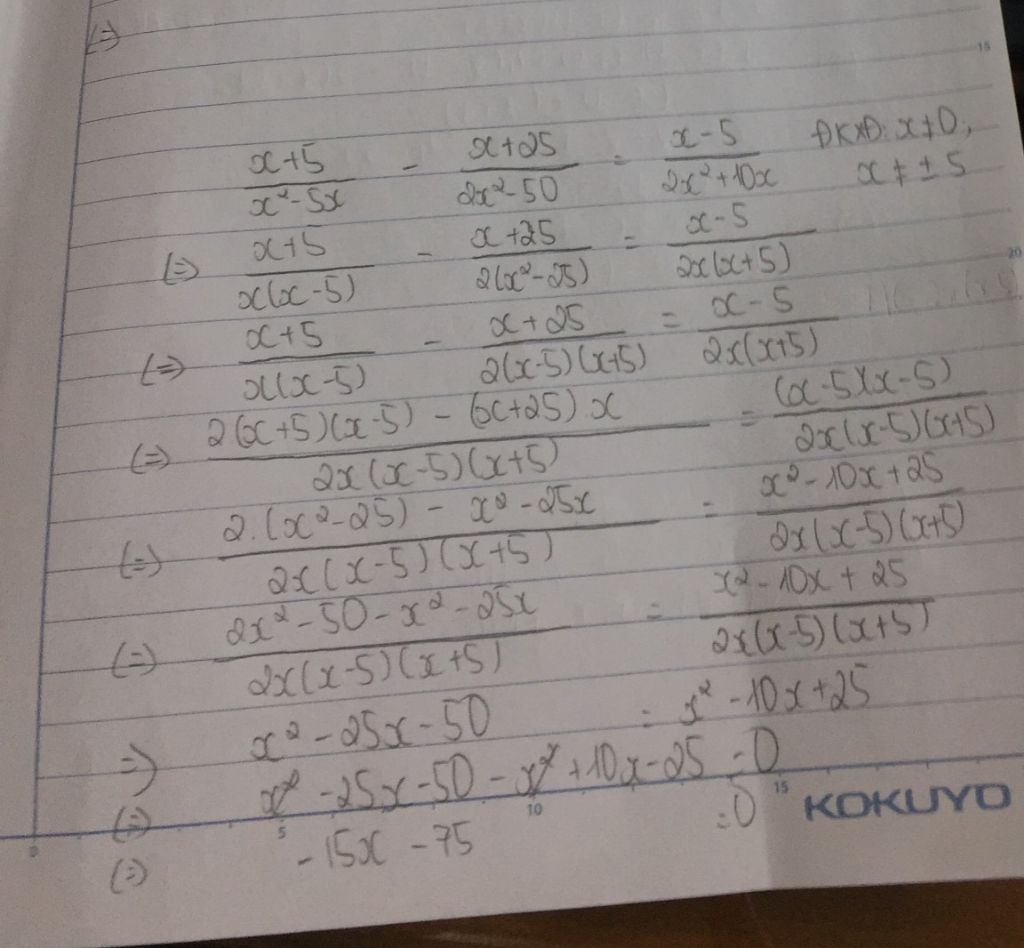 (=)
15
x+5/x²-5x - x+25/2x²-50 = x-5/2x²+10x ĐKXĐ: x≠0,
x ≠ ±5
(=) x+5/x(x-5) - x+25/2(x²-25) = x-5/2x(x+5)
20
(=) x+5/x(x-5) - x+25/2(x-5)(x+5) = x-5/2x(x+5)
(=) 2(x+5)(x-5) - (x+25).x/2x(x-5)(x+5) = (x-5)(x-5)/2x(x-5)(x+5)
(=) 2.(x²-25) - x²-25x/2x(x-5)(x+5) = x²-10x+25/2x(x-5)(x+5)
(=) 2x²-50-x²-25x/2x(x-5)(x+5) = x²-10x+25/2x(x-5)(x+5)
=) x²-25x-50 = x²-10x+25
(=) x²-25x-50-x²+10x-25=0
0 5 10 15 KOKUYO
(=) -15x-75 =0